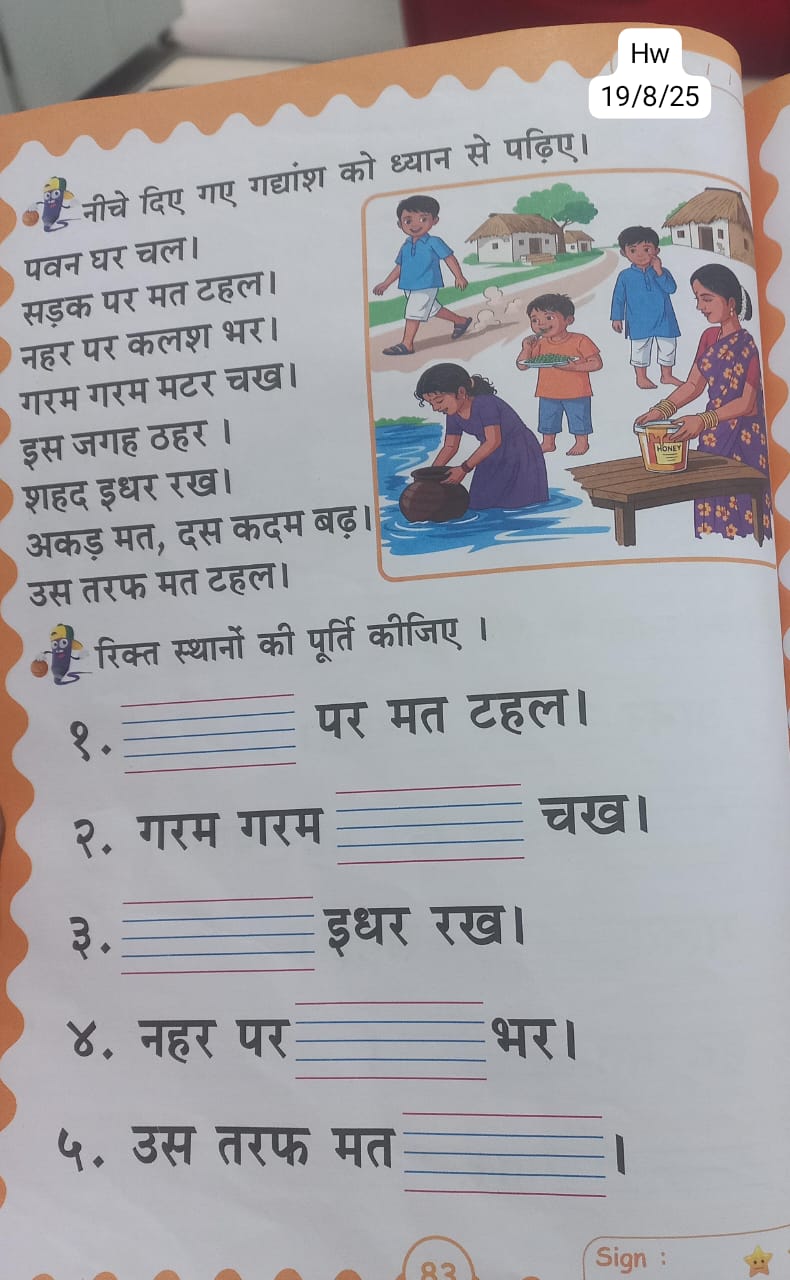 Hw
19/8/25
नीचे दिए गए गद्यांश को ध्यान से पढ़िए।
पवन घर चल।
सड़क पर मत टहल।
नहर पर कलश भर।
गरम गरम मटर चख।
इस जगह ठहर ।
शहद इधर रख।
अकड़ मत, दस कदम बढ़।
उस तरफ मत टहल।
HONEY
रिक्त स्थानों की पूर्ति कीजिए ।
१. पर मत टहल।
२. गरम गरम चख।
३. इधर रख।
४. नहर पर भर।
५. उस तरफ मत ।
83
Sign :